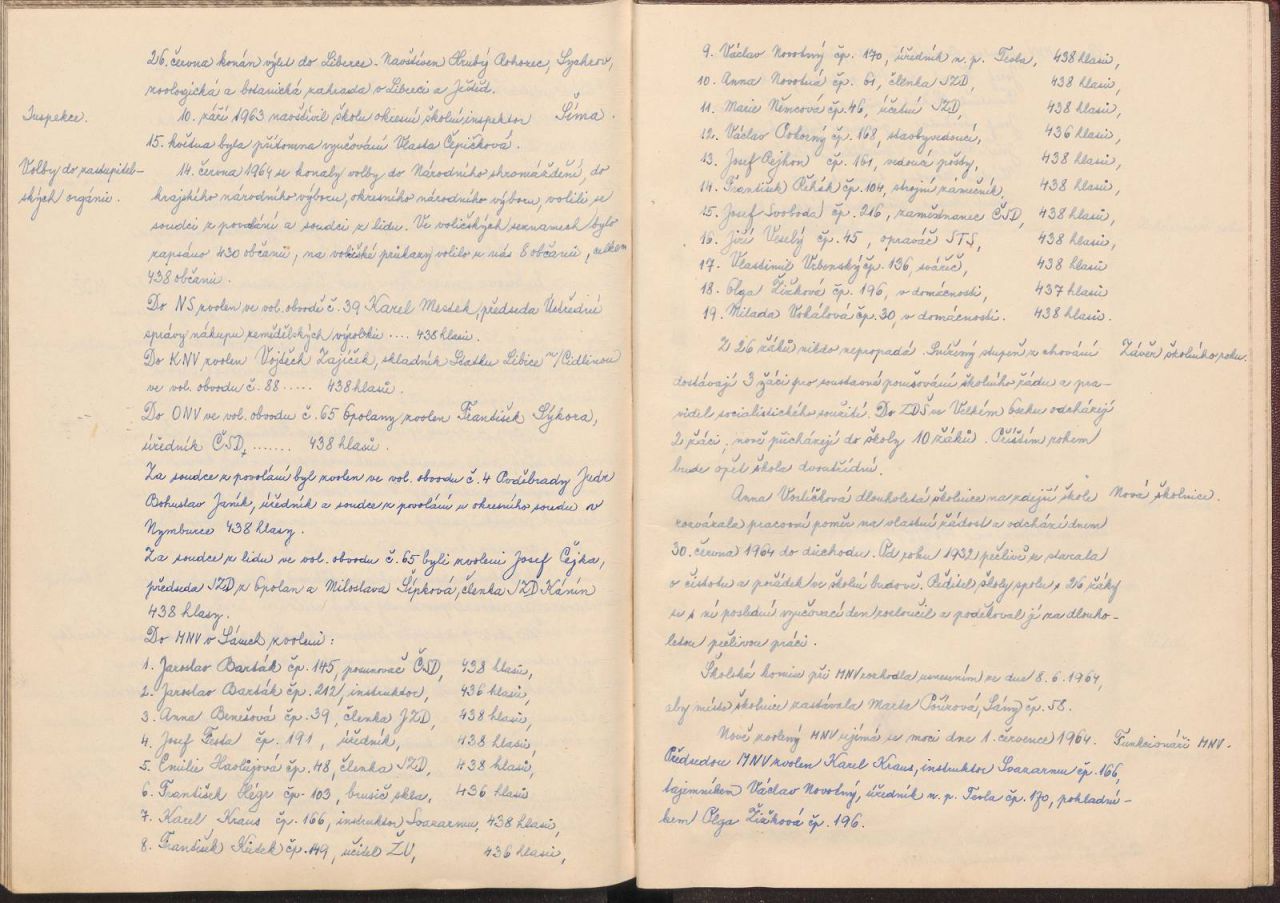 26. června konán výlet do Liberce. Navštíven Hrubý Rohozec, Sychrov,
zoologická a botanická zahrada v Liberci a Ještěd.
Inspekce.
10. září 1963 navštívil školu okresní školní inspektor Šíma.
15. května byla přítomna vyučování Vlasta Čepičková.
Volby do zastupitel-
ských orgánů.
14. června 1964 se konaly volby do Národního shromáždění, do
krajského národního výboru, okresního národního výboru, volili se
soudci z povolání a soudci z lidu. Ve voličských seznamech bylo
zapsáno 430 občanů, na voličské průkazy volilo u nás 8 občanů, celkem
438 občanů.
Do NS zvolen ve vol. obvodu č. 39 Karel Mestek, předseda Ústřední
správy nákupu zemědělských výrobků .... 438 hlasů.
Do KNV zvolen Vojtěch Zajíček, skladník Statku Libice n/Cidlinou
ve vol. obvodu č. 88 ..... 438 hlasů.
Do ONV ve vol. obvodu č. 65 Opolany zvolen František Sýkora,
úředník ČSD, ....... 438 hlasů.
Za soudce z povolání byl zvolen ve vol. obvodu č. 4 Poděbrady Judr
Bohuslav Janík, úředník a soudce z povolání u okresního soudu v
Nymburce 438 hlasy.
Za soudce z lidu ve vol. obvodu č. 65 byli zvoleni Josef Čejka,
předseda JZD z Opolan a Miloslava Šípková, členka JZD Kánín
438 hlasy.
Do MNV v Sánech zvoleni:
1. Jaroslav Barták čp. 145, posunovač ČSD, 438 hlasů,
2. Jaroslav Barták čp. 212, instruktor, 436 hlasů,
3. Anna Benešová čp. 39, členka JZD, 438 hlasů,
4. Josef Festa čp. 191, úředník, 438 hlasů
5. Emilie Havlějová čp. 48, členka JZD, 438 hlasů,
6. František Hégr čp. 103, brusič skla, 436 hlasů
7. Karel Kraus čp. 166, instruktor Svazarmu, 438 hlasů,
8. František Kůtek čp. 149, učitel ZV, 436 hlasů,
9. Václav Novotný čp. 170, úředník n. p. Tesla, 438 hlasů,
10. Anna Novotná čp. 61, členka JZD, 438 hlasů,
11. Marie Němcová čp. 46, účetní JZD, 438 hlasů,
12. Václav Pokorný čp. 168, stavbyvedoucí, 436 hlasů,
13. Josef Rejhon čp. 161, vedoucí pošty, 438 hlasů,
14. František Řehák čp. 104, strojní zámečník, 438 hlasů,
15. Josef Svoboda čp. 216, zaměstnanec ČSD, 438 hlasů,
16. Jiří Veselý čp. 45, opravář STS, 438 hlasů,
17. Vlastimil Vrbenský čp. 136, svářeč, 438 hlasů
18. Olga Žižková čp. 196, v domácnosti, 437 hlasů
19. Milada Vokálová čp. 30, v domácnosti. 438 hlasů.
Z 26 žáků nikdo nepropadá. Snížený stupeň z chování
Závěr školního roku.
dostávají 3 žáci pro soustavné porušování školního řádu a pra-
videl socialistického soužití. Do ZDŠ ve Velkém Oseku odcházejí
2 žáci, nově přicházejí do školy 10 žáků. Příštím rokem
bude opět škola dvoutřídní.
Anna Vorlíčková dlouholetá školnice na zdejší škole
Nová školnice.
rozvázala pracovní poměr na vlastní žádost a odchází dnem
30. června 1964 do důchodu. Od roku 1932 pečlivě se starala
o čistotu a pořádek ve školní budově. Ředitel školy spolu s 26 žáky
se s ní poslední vyučovací den rozloučil a poděkoval jí za dlouho-
letou pečlivou práci.
Školská komise při MNV rozhodla usnesením ze dne 8.6.1964,
aby místo školnice zastávala Marta Pourová, Sány čp. 58.
Nově zvolený MNV ujímá se moci dne 1. července 1964.
Funkcionáři MNV.
Předsedou MNV zvolen Karel Kraus, instruktor Svazarmu čp. 166,
tajemníkem Václav Novotný, úředník n. p. Tesla čp. 170, pokladní-
kem Olga Žižková čp. 196.